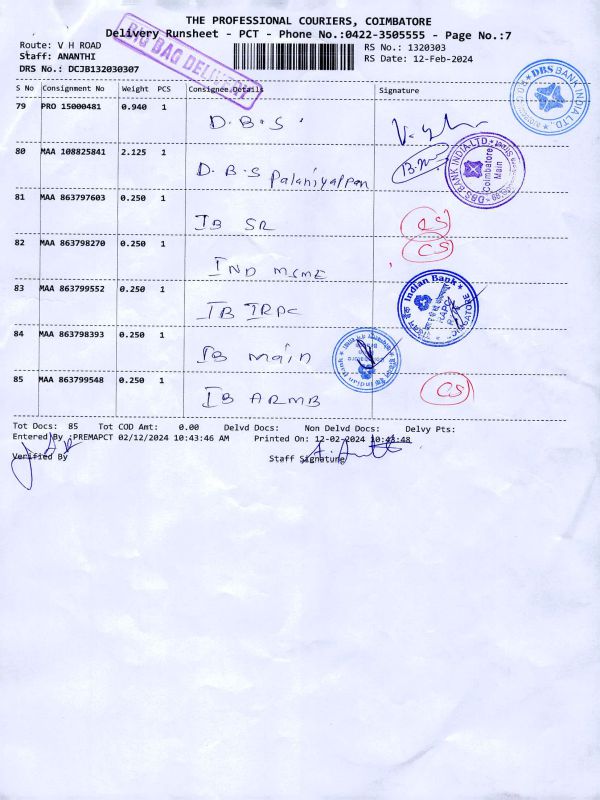 THE PROFESSIONAL COURIERS, COIMBATORE
Delivery Runsheet - PCT - Phone No.:0422-3505555 - Page No.:7
Route: V H ROAD
RS No.: 1320303
Staff: ANANTHI
RS Date: 12-Feb-2024
DRS No.: DCJB132030307
BIG BAG DELIVERY
S No Consignment No Weight PCS Consignee Details Signature
79 PRO 15000481 0.940 1 D.B.S.
DBS BANK INDIA LTD
80 MAA 108825841 2.125 1 D.B.S Palaniyappan
DBS BANK INDIA LTD. Coimbatore Main
81 MAA 863797603 0.250 1 IB SR CS
82 MAA 863798270 0.250 1 IND MSME CS
83 MAA 863799552 0.250 1 IB IRPC
Indian Bank
84 MAA 863798393 0.250 1 IB main
Indian Bank
85 MAA 863799548 0.250 1 IB ARMB CS
Tot Docs: 85 Tot COD Amt: 0.00 Delvd Docs: Non Delvd Docs: Delvy Pts:
Entered By :PREMAPCT 02/12/2024 10:43:46 AM Printed On: 12-02-2024 10:43:48
Verified By Staff Signature